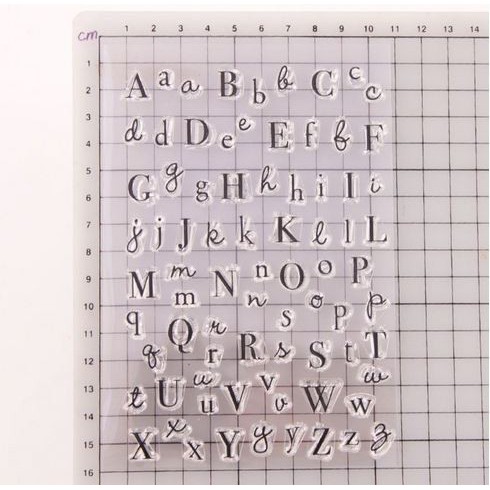 cm 1 2 3 4 5 6 7 8 9 10 11 12 13 14
1
2
4
5
6
7
8
9
10
11
12
13
14
15
16
A a a B b b C c c
d d D e e E f f F
G g g H h h i I i
j j J k k K l l L
M m m N n n O o o P p p
q q Q r r R s s S t t T
U u u V v v W w w
X x x Y y y Z z z